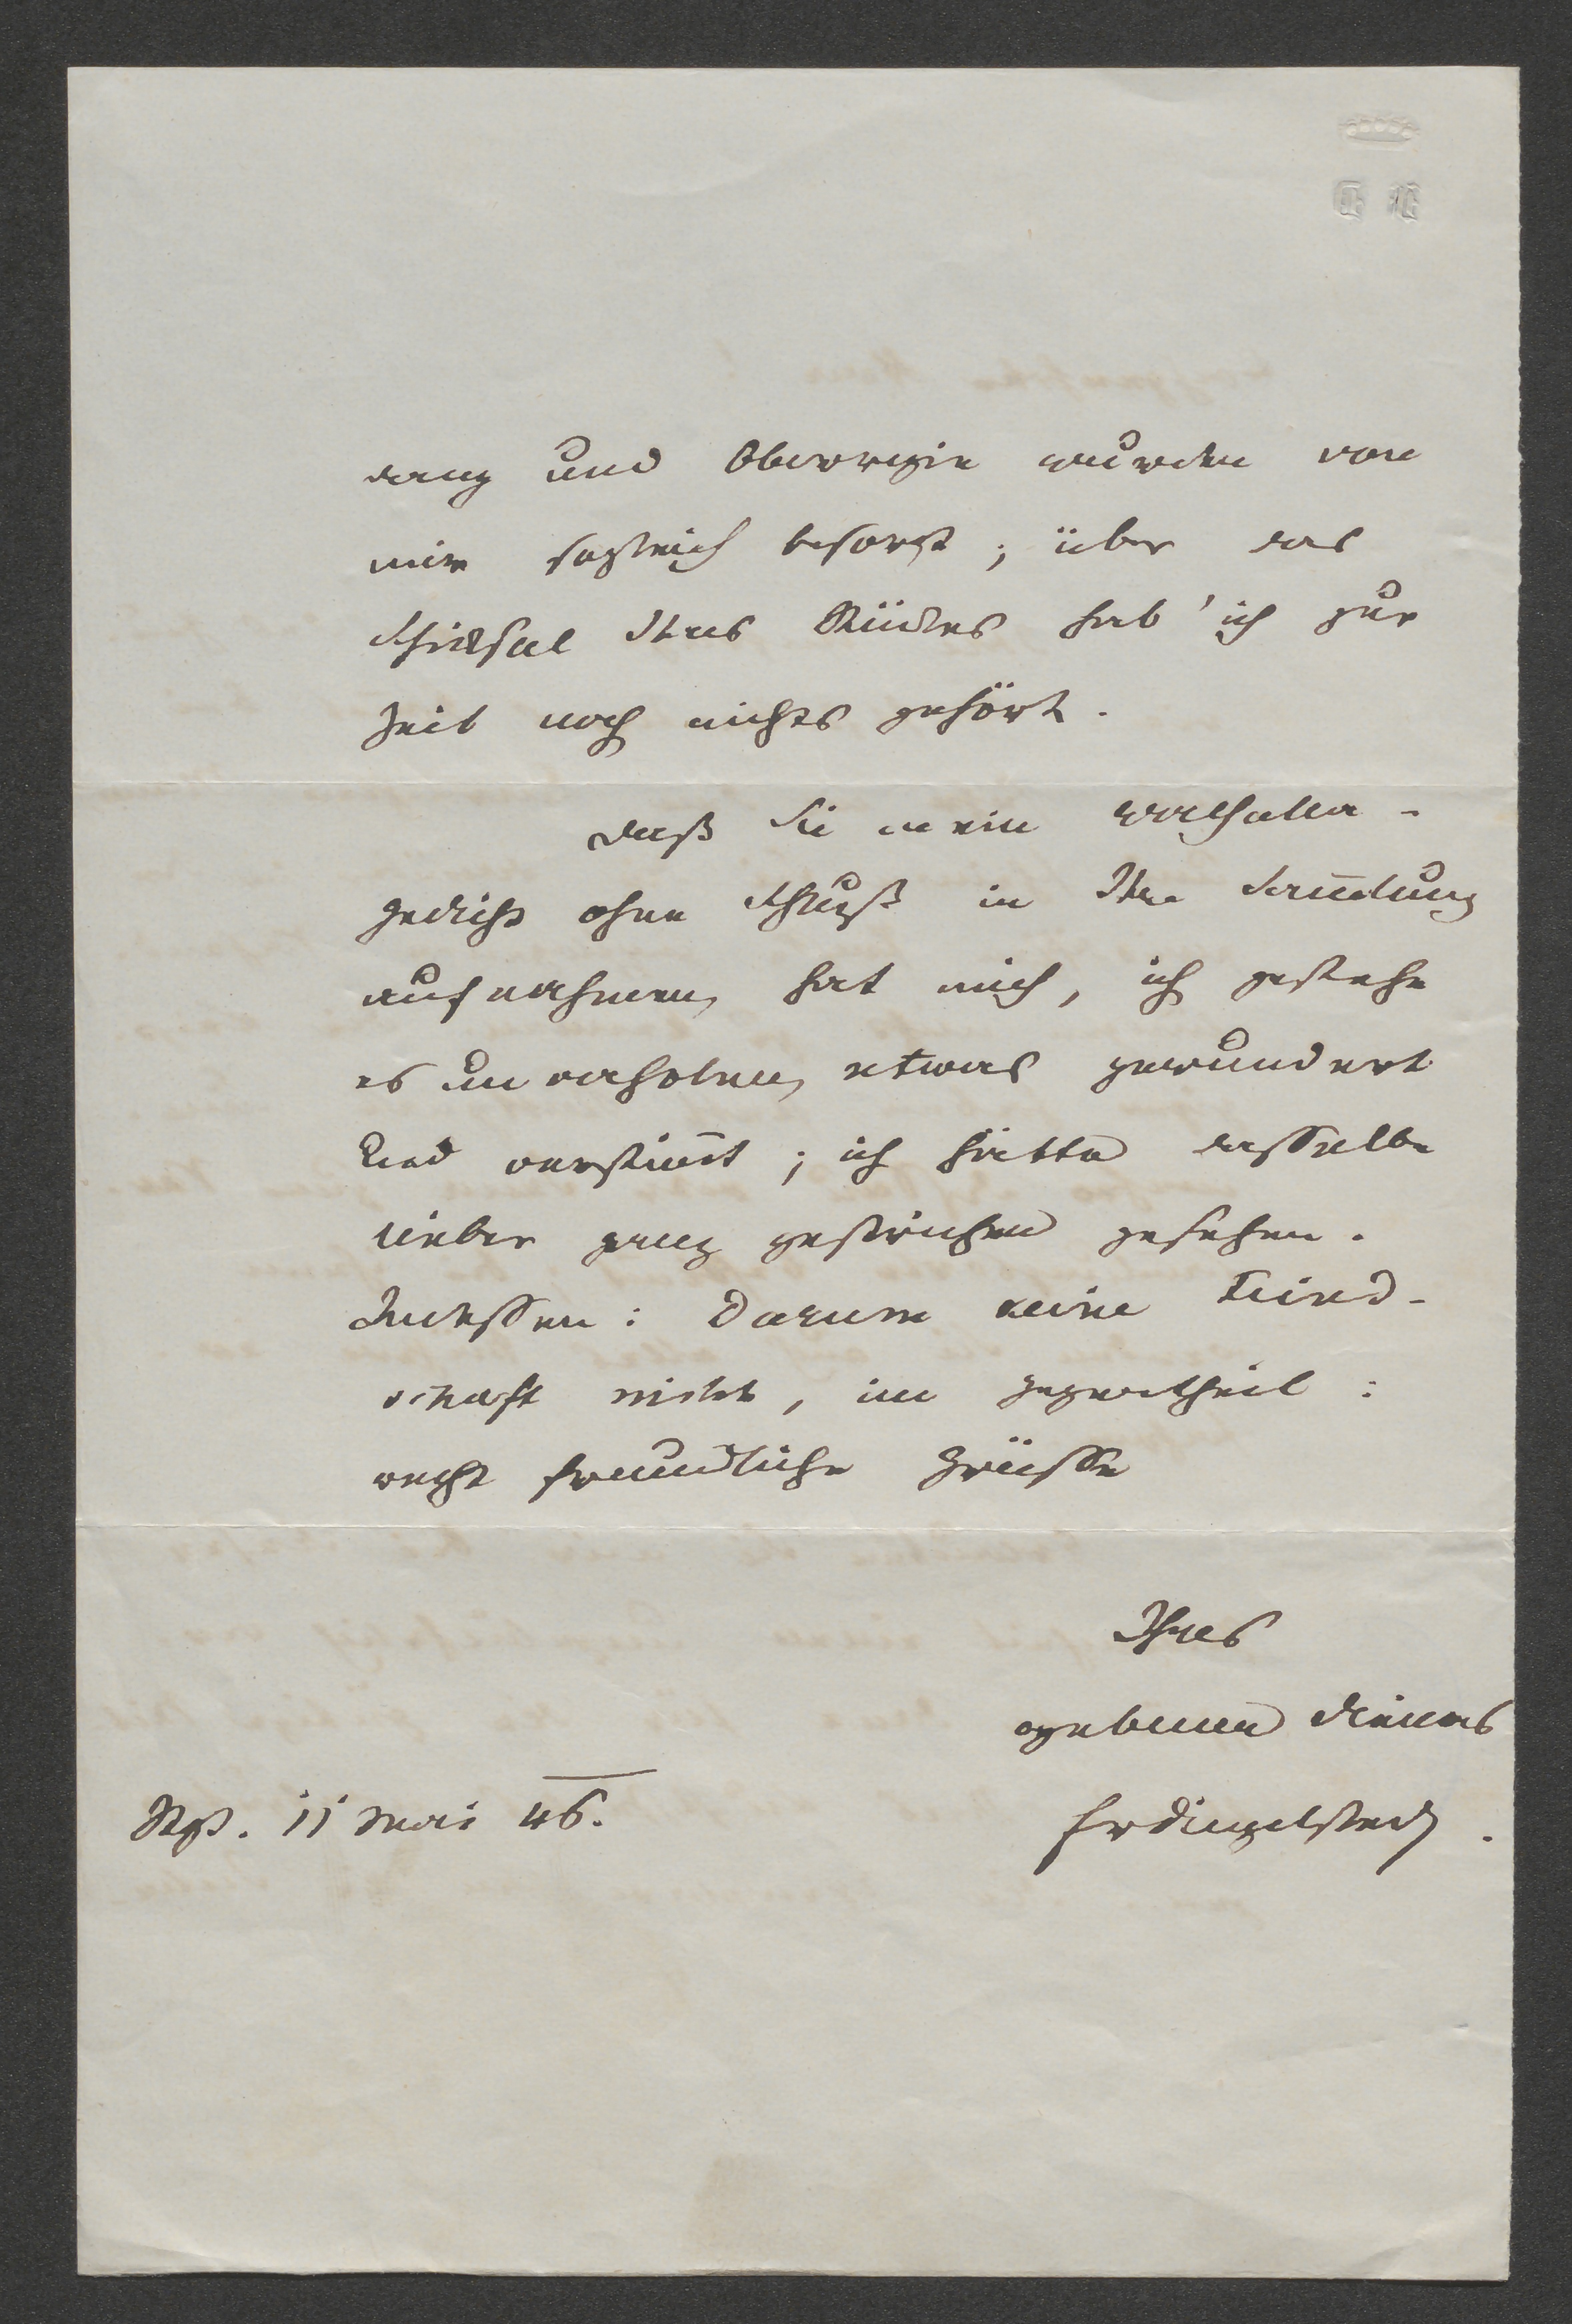 danz und Oberregie wurden von
mir sogleich besorgt; über das
Schicksal Ihres Stückes hab' ich zur
Zeit noch nichts gehört.
Daß Sie mein Walhalla-
gedicht ohne Schluß in Ihre Sam̅lung
aufnahmen, hat mich, ich gestehe
es unverholen, etwas gewundert
und verstim̅t; ich hätte dasselbe
lieber ganz gestrichen gesehen.
Indessen: Darum keine Feind-
schaft nicht, im Gegentheil:
recht freundliche Grüsse
Ihres
ergebenen Dieners
FrDingelstedt.
Stgt. 11 Mai 46.